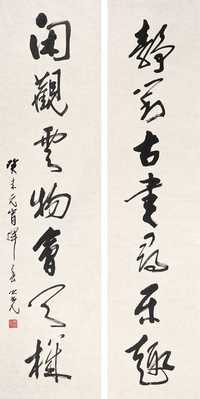 靜對古書尋樂趣
閑觀雲物會天機
癸未元宵